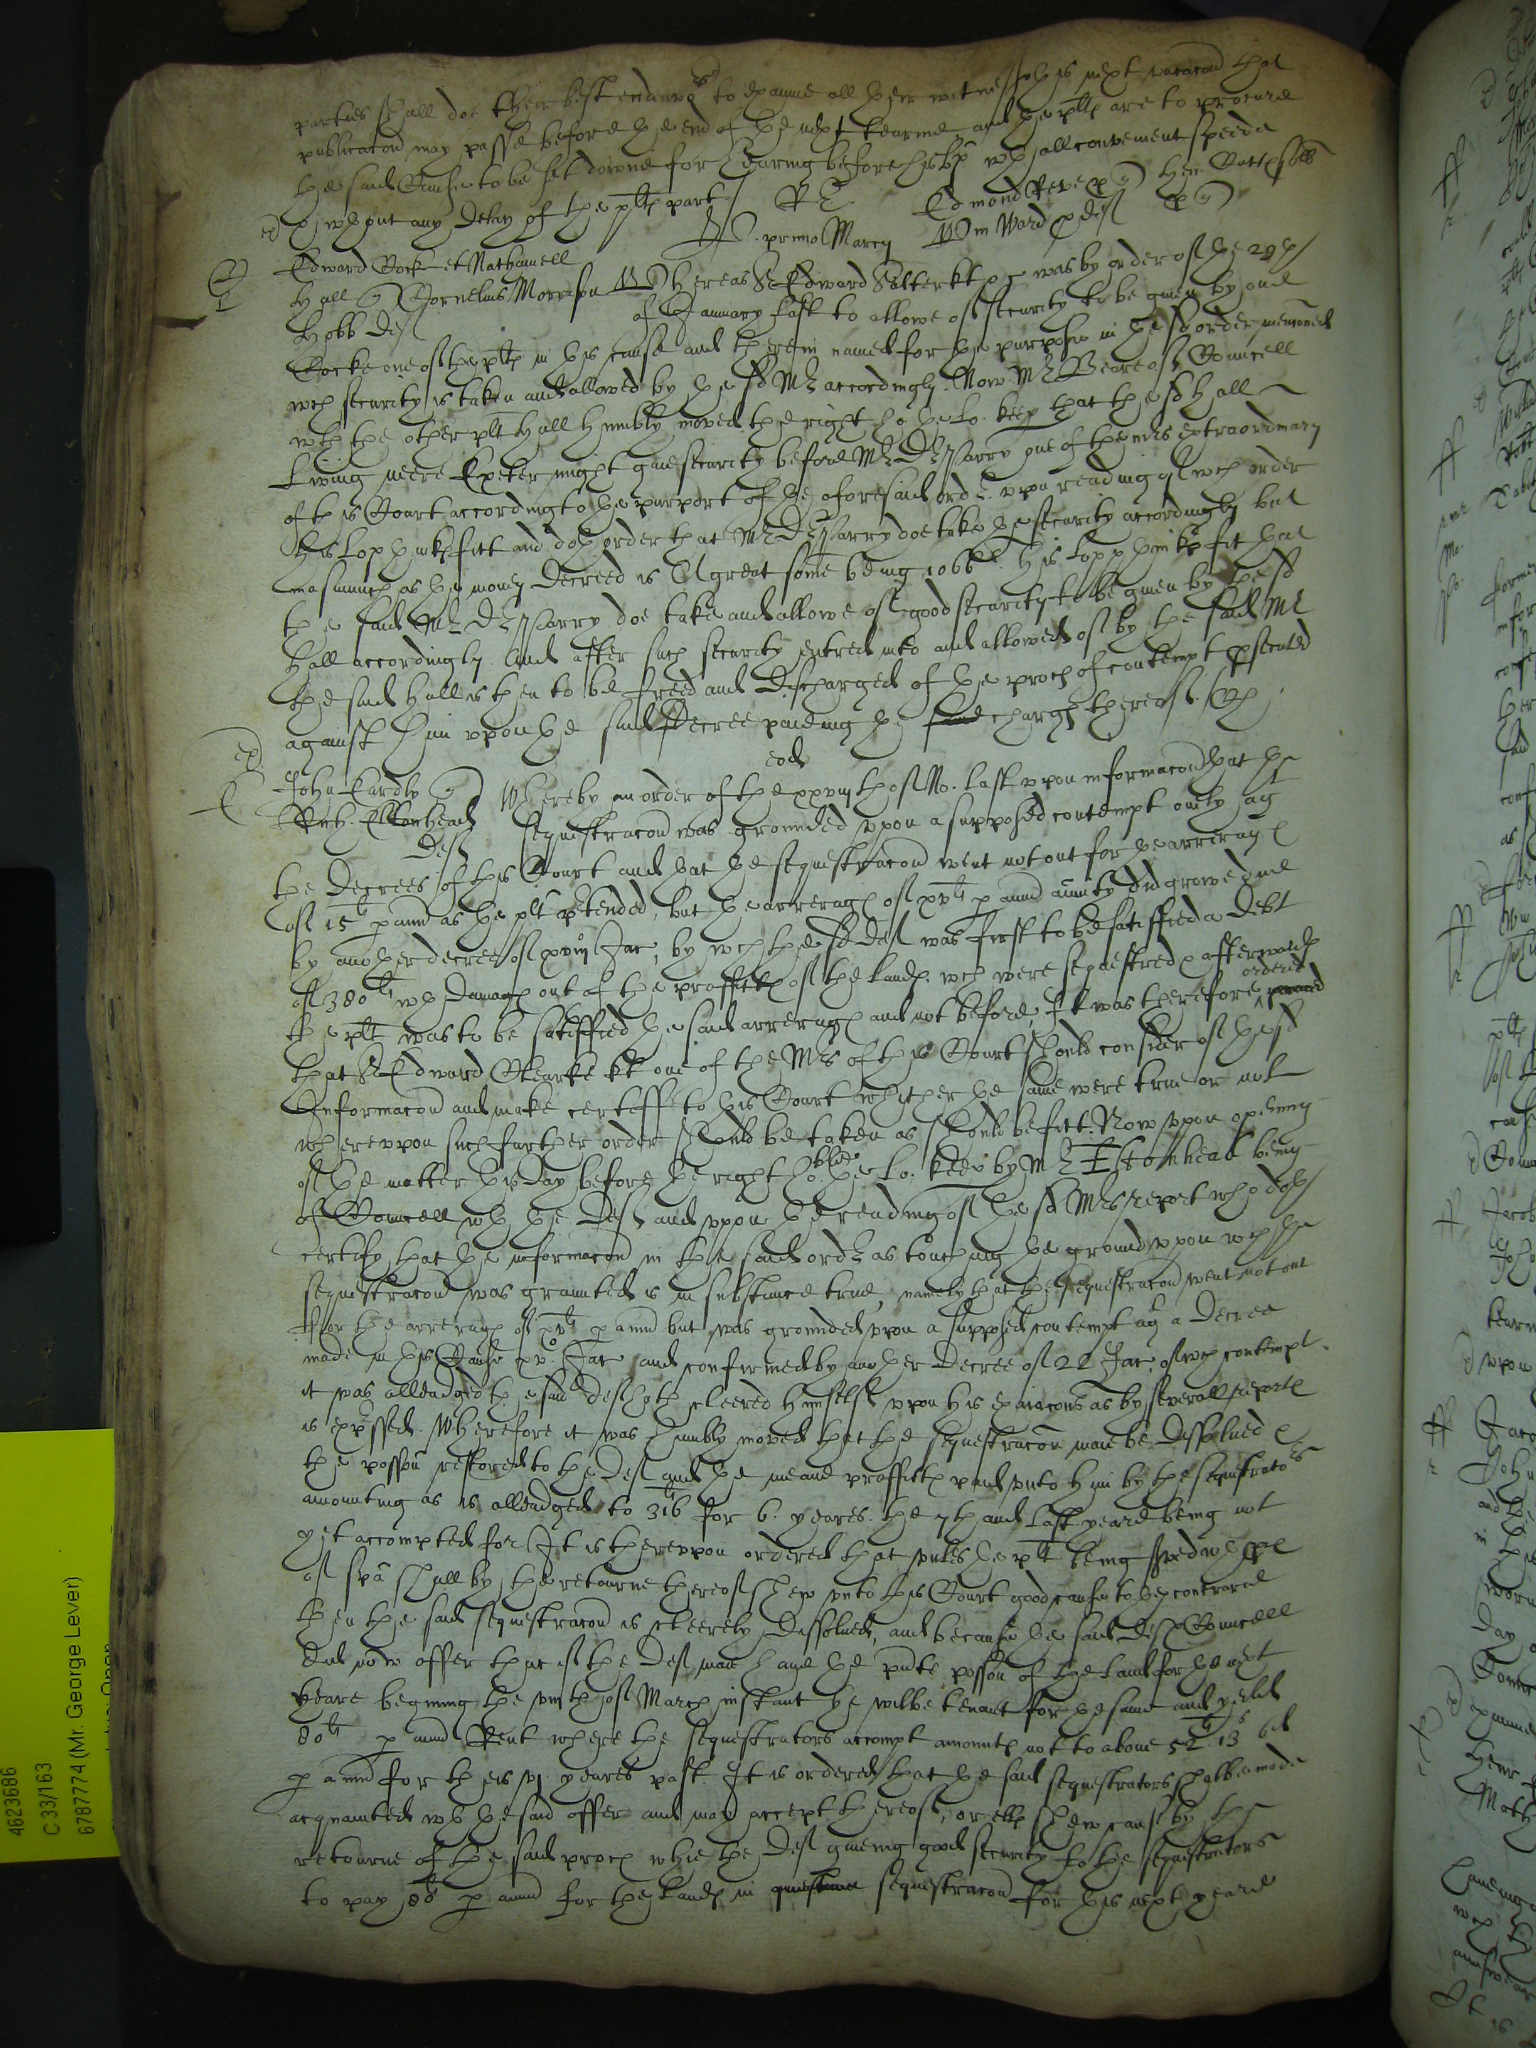 parties shall doe their best endeavors to examine all their witnesses this next vacacon that
publicacon may passe before the end of the next tearme and the plts are to procure
the said Cause to be set downe for hearing before his lp wth all convenient speede
wthout any delay of the plts part
Edmond Reve
primo Marcij Wm Ward p def
Edward Cock et Nathaniell
Hall Cornelius Morrison Whereas Sr Edward Salter kt was by order of the 29th
Hobb def of January last to allowe of security to be given by one
Cocke one of the plts in this cause and therein named for the purpose in the sd order menconed
wch security is taken and allowed by the sd Mr accordingly. Now Mr Beare of Councell
wth the other plt Hall humbly moved the right ho. the Lo. keep that the sd Hall
Living neere Exeter might give security before Mr Dr Parry one of the mrs extraordinary
of this Court according to the purport of the aforesaid ordr. upon reading of wch order
his Lopp thinks fitt and doth order that Mr Dr Parry doe take the security accordingly but
inasmuch as the money decreed is A great some being 1066li. his Lopp thinks fit that
the said Mr Dr Parry doe take and allowe of good security to be given by the sd
Hall accordingly. And after such security entred into and allowed of by the said Mr
the said Hall is then to be freed and discharged of the proces of contempt prosecuted
against him upon the said decree paieing the charges thereof.
eod
John Eardly Whereby an order of the xxviijth of No. last upon informacon that the
Rich. Estonhead sequestracon was grounded upon a supposed contempt only ag
def
the decrees of this Court and that the sequestracon went not out for the arrerages
of 15li p ann as the plt pretended, but the arrerages of xvli p ann annuity did growe due
by another decree of xviijo Jac, by wch the sd def was first to be satisfied a debt
of 380li wth damages out of the proffitts of the lands wch were sequestred & afterwards
the plt was to be satisffied the said arrerages and not before, It was therefore ordered
that Sr Edward Clearke kt one of the Mrs of this Court should consider of the sd
Informacon and make certiff to this Court whither the same were true or not
whereuppon such further order should be taken as should be fitt. Now upon opening
of the matter this day before the right hoble the Lo. keep by Mr Estonhead being
of Councell wth the def and uppon the reading of the sd Mrs report who doth
certify that the informacon in the said ordr as touching the ground upon wch the
sequestracon was graunted is in substance true, namely that the sequestracon went not out
for the arrerages of xvli p ann but was grounded upon a supposed contempt ag a decree
made in this Cause xvo Jac and confirmed by another decree of 22 Jac, of wch contempt
it was alleadged the said def hath cleered himself upon his exaiacons as by severall reports
is expssed. Wherefore it was humbly moved that the sequestracon maie be dissolued &
the possion restored to the def and the meane proffitts paid unto him by the sequestrators
amounting as is alleadged to 316li for 6. yeares. the 7th and last yeare being not
yet accompted for It is thereuppon ordered that unles the plt being served wth
of spa shall by the retourne thereof shew unto this Court good cause to the contrarie
then the said sequestracon is cleerely dissolued, and because the said def Councell
did now offer that if the def maie have the pnte possion of the land for the next
yeare begining the viijth of March instant he wilbe tenant for the same and yeild
80li p ann Rent where the sequestrators accompt amounts not to above 52li 13s 6d
p ann for theis vj yeares past It is ordered that the said sequestrators shalbe made
acquainted wth the said offer and may accept thereof, or ells shew cause by the
retourne of the said proces whie the def giveing good security to the sequestrators
to pay 80li p ann for the lands in sequestracon for this next yeare
4623686
C 33/163
6787774 (Mr. George Lever)